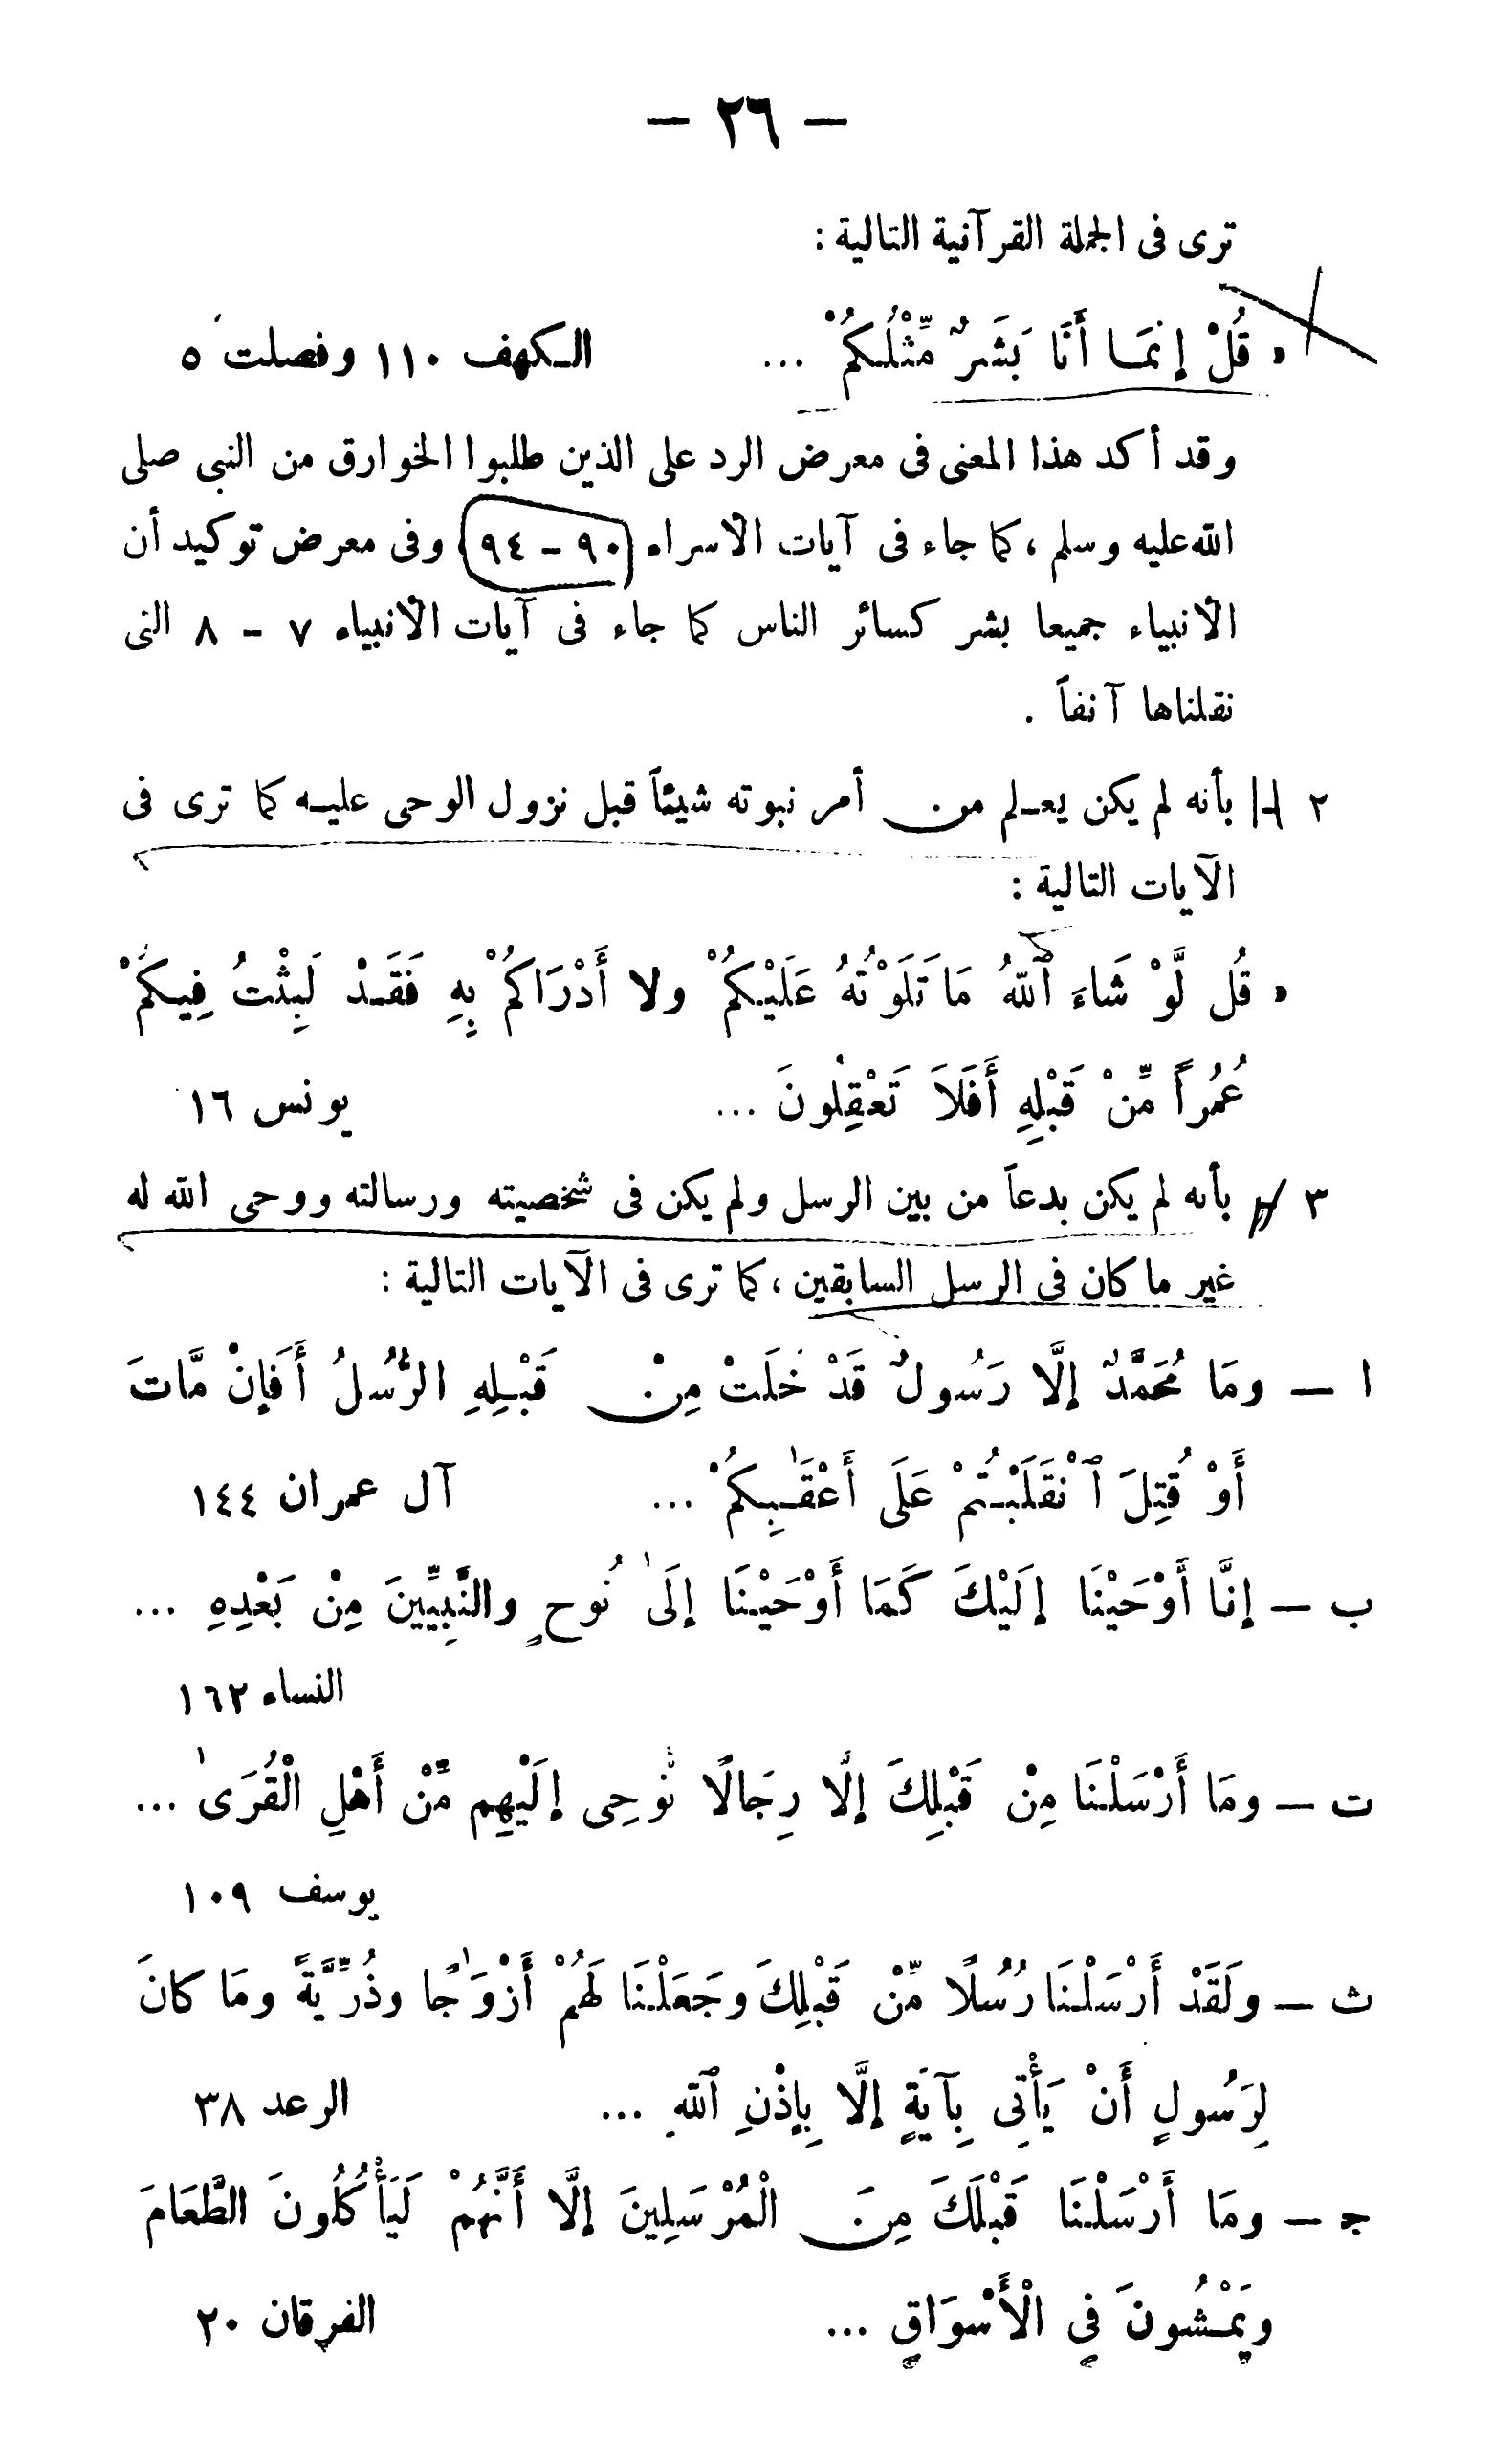 — ٢٦ —
ترى فى الجملة القرآنية التالية :
« قُلْ إِنَمَـا أَنَا بَشَرٌ مِّثْلُـكُمْ ... الـكهف ١١٠ وفصلت ٥
وقد أكد هذا المعنى فى معرض الرد على الذين طلبوا الخوارق من النبى صلى
الله عليه وسلم ، كما جاء فى آيات الاسراء (٩٠ – ٩٤) وفى معرض توكيد أن
الأنبياء جميعا بشر كسائر الناس كما جاء فى آيات الأنبياء ٧ – ٨ التى
نقلناها آنفاً .
٢ – بأنه لم يكن يعـلم من أمر نبوته شيئاً قبل نزول الوحى عليـه كما ترى فى
الآيات التالية :
« قُل لَّوْ شَاءَ ٱللهُ مَا تَلَوْتُهُ عَلَيْـكُمْ ولا أَدْرَاكُمْ بِهِ فَقَـدْ لَبِثْتُ فِيـكُمْ
عُمُراً مِّنْ قَبْلِهِ أَفَلَا تَعْقِلُونَ ... يونس ١٦
٣ – بأنه لم يكن بدعاً من بين الرسل ولم يكن فى شخصيته ورسالته ووحى الله له
غير ما كان فى الرسل السابقين ، كما ترى فى الآيات التالية :
ا — ومَا مُحَمَّدٌ إِلَّا رَسُولٌ قَدْ خَلَتْ مِنْ قَبْـلِهِ الرُّسُلُ أَفَإِنْ مَّاتَ
أَوْ قُتِلَ ٱنْقَلَبْـتُمْ عَلَى أَعْقَـٰبِـكُمْ ... آل عمران ١٤٤
ب — إِنَّا أَوْحَيْنَا إِلَيْكَ كَمَا أَوْحَيْـنَا إِلَىٰ نُوحٍ والنَّبِيِّينَ مِنْ بَعْدِهِ ...
النساء ١٦٢
ت — ومَا أَرْسَلْـنَا مِنْ قَبْلِكَ إِلَّا رِجَالًا نُوحِى إِلَيْهِم مِّنْ أَهْلِ الْقُرَىٰ ...
يوسف ١٠٩
ث — ولَقَدْ أَرْسَلْـنَا رُسُلًا مِّنْ قَبْلِكَ وجَعَلْـنَا لَهُمْ أَزْوَٰجًا وذُرِّيَّةً ومَا كانَ
لِرَسُولٍ أَنْ يَأْتِى بِآيَةٍ إِلَّا بِإِذْنِ ٱللهِ ... الرعد ٣٨
ج — ومَا أَرْسَلْـنَا قَبْلَكَ مِنَ الْمُرْسَلِينَ إِلَّا أَنَّهُمْ لَيَأْكُلُونَ الطَّعَامَ
ويَمْـشُونَ فِي الْأَسْوَاقِ ... الفرقان ٢٠